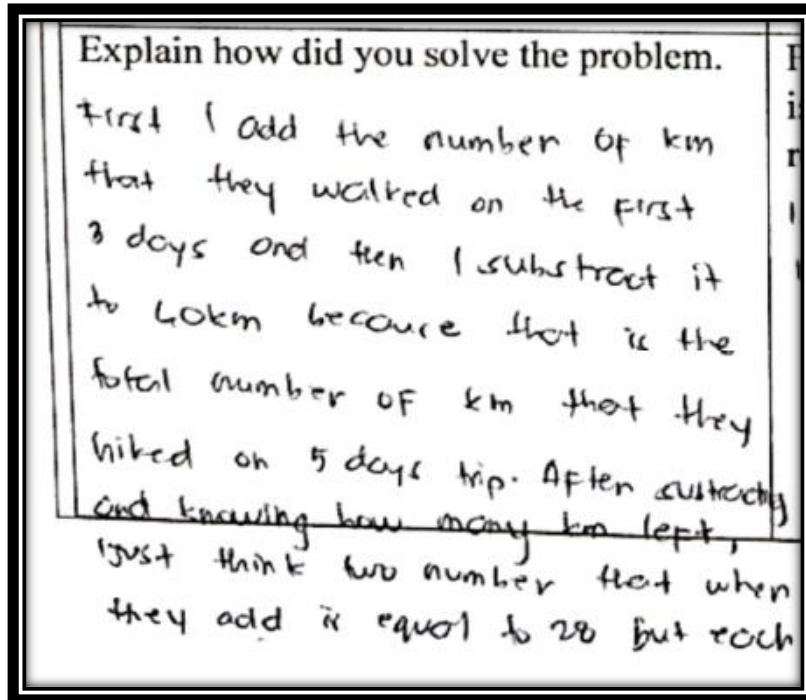 Explain how did you solve the problem.
First I add the number of km
that they walked on the first
3 days and then I substract it
to 40km because that is the
total number of km that they
hiked on 5 days trip. After sustracting
and knowing how many km left,
I just think two number that when
they add is equal to 28 but each